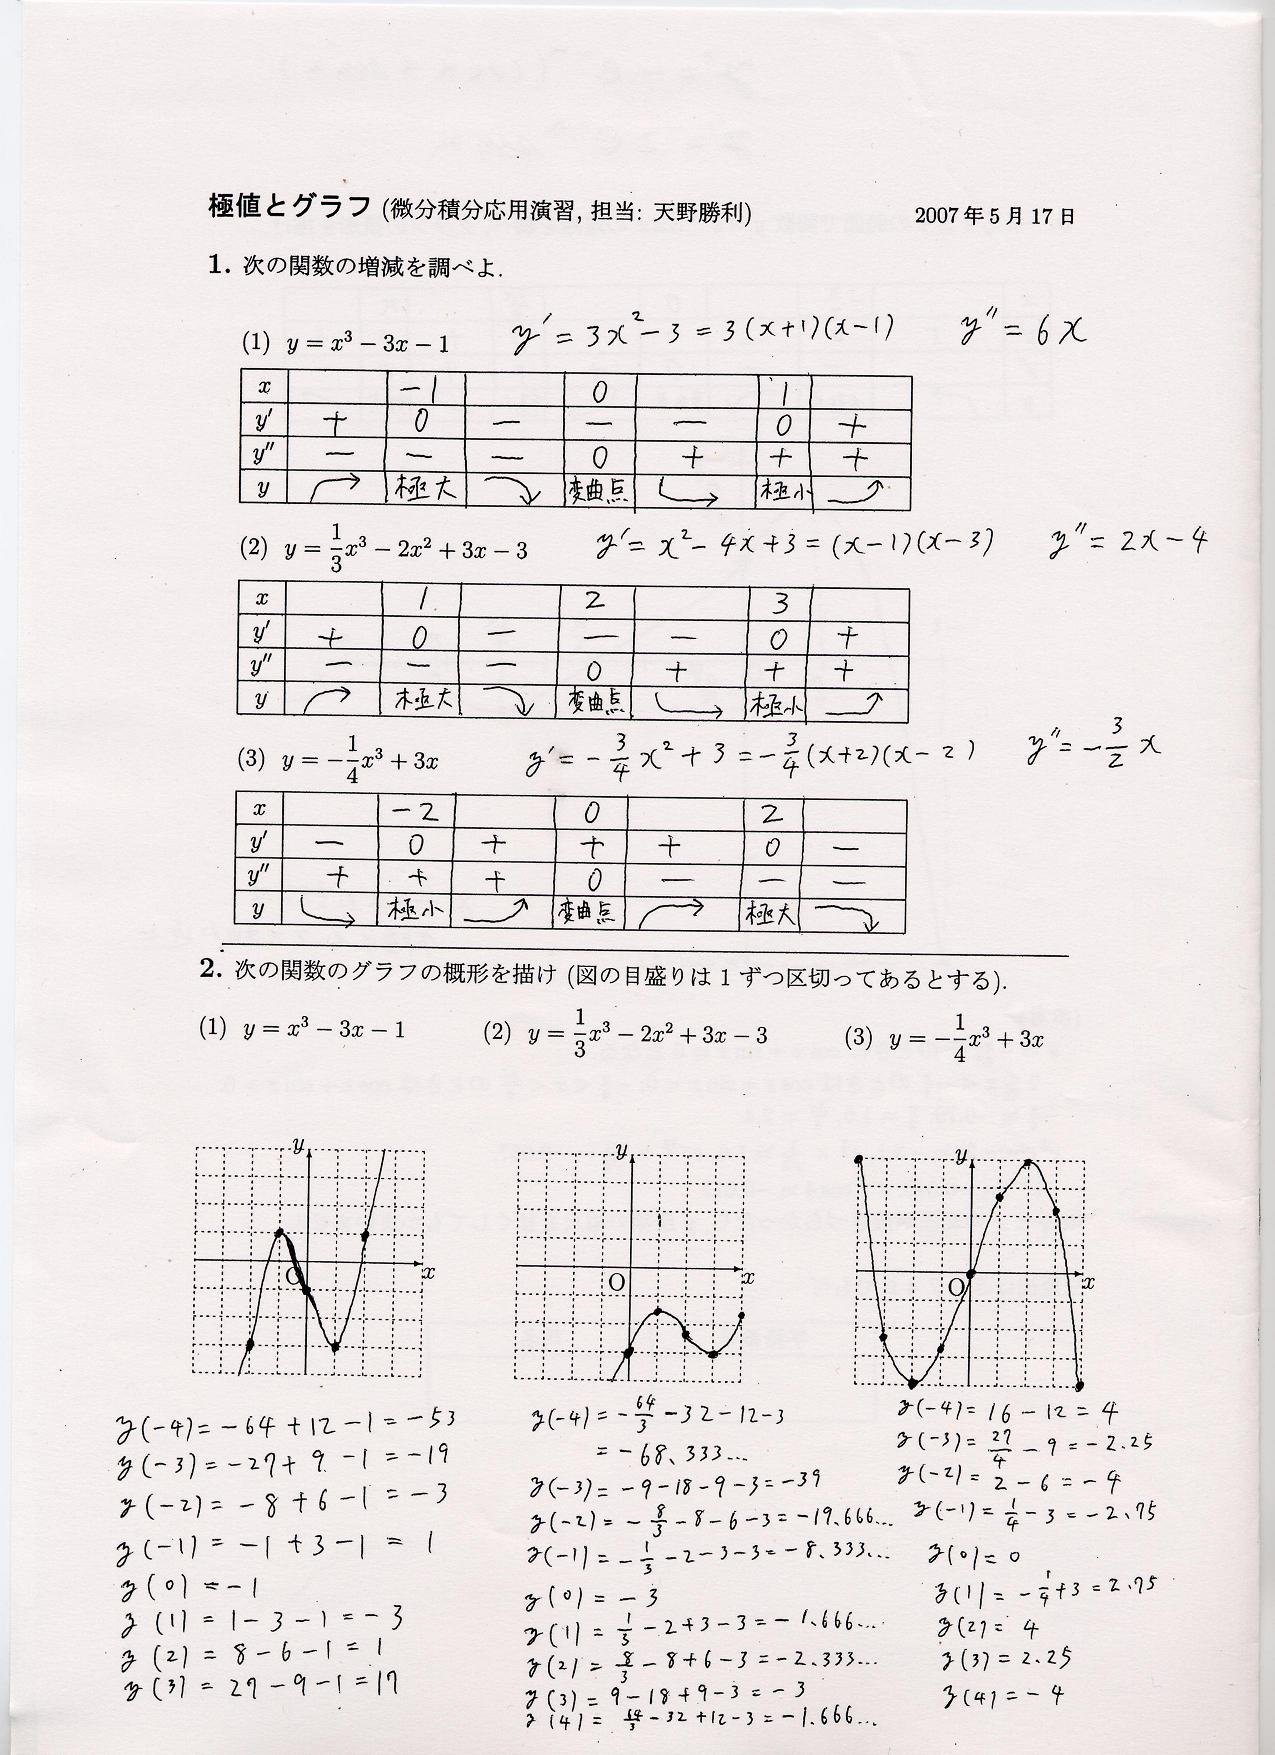 極値とグラフ (微分積分応用演習, 担当: 天野勝利) 2007年5月17日
1. 次の関数の増減を調べよ.
(1) y = x³ − 3x − 1 y′ = 3x² − 3 = 3(x+1)(x−1) y″ = 6x
x −1 0 1
y′ + 0 − − − 0 +
y″ − − − 0 + + +
y 極大 変曲点 極小
(2) y = 1/3 x³ − 2x² + 3x − 3 y′ = x² − 4x + 3 = (x−1)(x−3) y″ = 2x − 4
x 1 2 3
y′ + 0 − − − 0 +
y″ − − − 0 + + +
y 極大 変曲点 極小
(3) y = −1/4 x³ + 3x y′ = −3/4 x² + 3 = −3/4 (x+2)(x−2) y″ = −3/2 x
x −2 0 2
y′ − 0 + + + 0 −
y″ + + + 0 − − −
y 極小 変曲点 極大
2. 次の関数のグラフの概形を描け (図の目盛りは1ずつ区切ってあるとする).
(1) y = x³ − 3x − 1 (2) y = 1/3 x³ − 2x² + 3x − 3 (3) y = −1/4 x³ + 3x
y
O
x
y
O
x
y
O
x
y(−4) = −64 + 12 − 1 = −53
y(−3) = −27 + 9 − 1 = −19
y(−2) = −8 + 6 − 1 = −3
y(−1) = −1 + 3 − 1 = 1
y(0) = −1
y(1) = 1 − 3 − 1 = −3
y(2) = 8 − 6 − 1 = 1
y(3) = 27 − 9 − 1 = 17
y(−4) = −64/3 − 32 − 12 − 3
= −68.333...
y(−3) = −9 − 18 − 9 − 3 = −39
y(−2) = −8/3 − 8 − 6 − 3 = −19.666...
y(−1) = −1/3 − 2 − 3 − 3 = −8.333...
y(0) = −3
y(1) = 1/3 − 2 + 3 − 3 = −1.666...
y(2) = 8/3 − 8 + 6 − 3 = −2.333...
y(3) = 9 − 18 + 9 − 3 = −3
y(4) = 64/3 − 32 + 12 − 3 = −1.666...
y(−4) = 16 − 12 = 4
y(−3) = 27/4 − 9 = −2.25
y(−2) = 2 − 6 = −4
y(−1) = 1/4 − 3 = −2.75
y(0) = 0
y(1) = −1/4 + 3 = 2.75
y(2) = 4
y(3) = 2.25
y(4) = −4